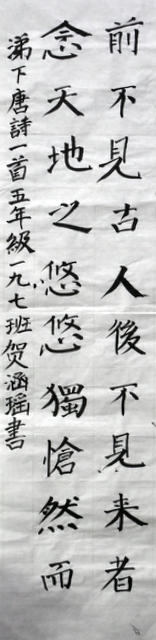 前不見古人後不見来者
念天地之悠悠獨愴然而
涕下唐詩一首五年級一九七班贺涵瑶書